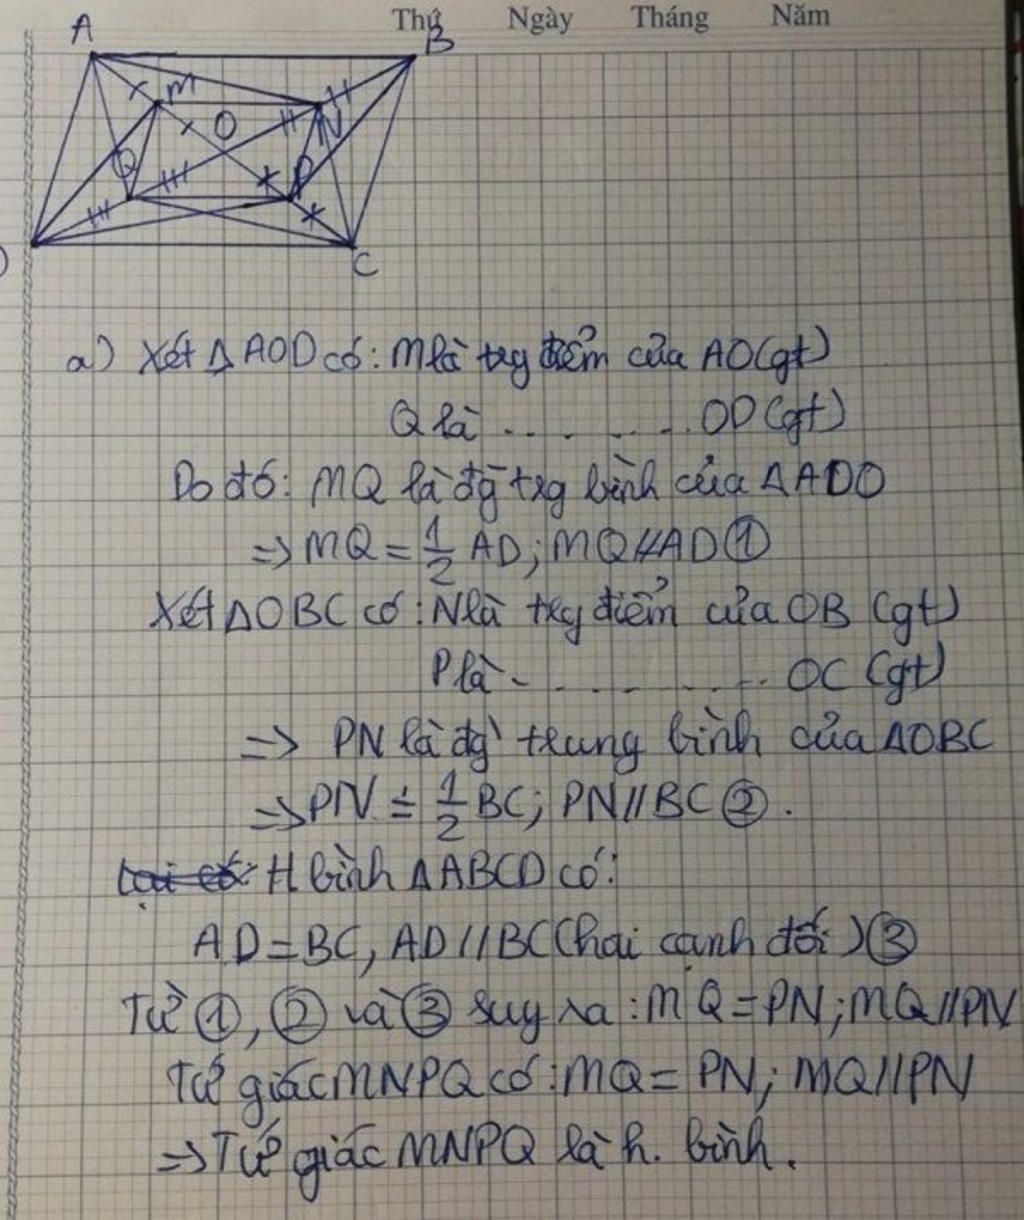 Thứ Ngày Tháng Năm
A B
M N
O
Q P
D C
a) Xét Δ AOD có: M là trg điểm của AO (gt)
Q là . . . . . . OD (gt)
Do đó: MQ là đg trg bình của Δ ADO
=> MQ = 1/2 AD; MQ // AD ①
Xét Δ OBC có: N là trg điểm của OB (gt)
P là . . . . . . . OC (gt)
=> PN là đg trung bình của Δ OBC
=> PN = 1/2 BC; PN // BC ②.
H bình Δ ABCD có:
AD = BC, AD // BC (hai cạnh đối) ③
Từ ①, ② và ③ suy ra: MQ = PN; MQ // PN
Tứ giác MNPQ có: MQ = PN; MQ // PN
=> Tứ giác MNPQ là h. bình.